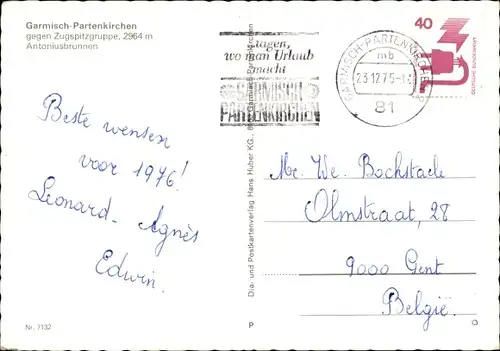 Garmisch-Partenkirchen
gegen Zugspitzgruppe, 2964 m
Antoniusbrunnen
Beste wensen
voor 1976!
Leonard - Agnès
Edwin.
Nr. 7132
Dia- und Postkartenverlag Hans Huber KG., Garmisch-Partenkirchen
P
sagen,
wo man Urlaub
macht
GARMISCH-
PARTENKIRCHEN
GARMISCH-PARTENKIRCHEN
mb
23.12.75-
81
40
DEUTSCHE BUNDESPOST
Mr. We. Bockstaele
Olmstraat, 28
9000 Gent
België.